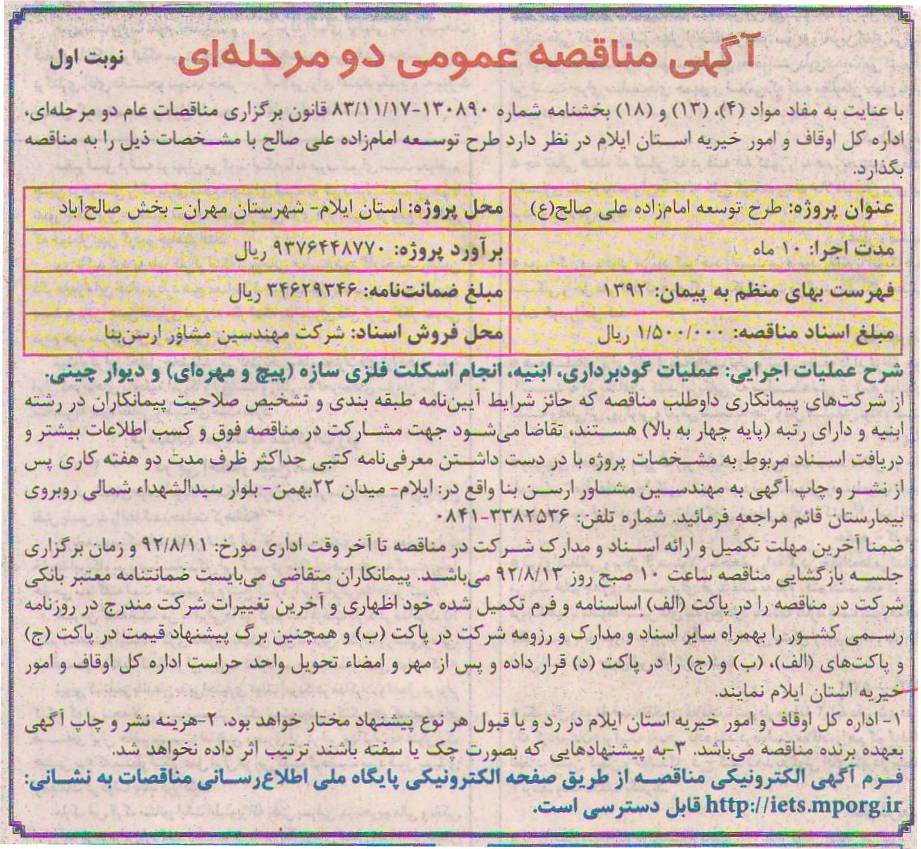 آگهی مناقصه عمومی دو مرحله‌ای
نوبت اول
با عنایت به مفاد مواد (۴)، (۱۳) و (۱۸) بخشنامه شماره ۱۳۰۸۹۰-۸۳/۱۱/۱۷ قانون برگزاری مناقصات عام دو مرحله‌ای،
اداره کل اوقاف و امور خیریه استان ایلام در نظر دارد طرح توسعه امامزاده علی صالح با مشخصات ذیل را به مناقصه
بگذارد.
عنوان پروژه: طرح توسعه امامزاده علی صالح(ع)
محل پروژه: استان ایلام- شهرستان مهران- بخش صالح‌آباد
مدت اجرا: ۱۰ ماه
برآورد پروژه: ۹۳۷۶۴۴۸۷۷۰ ریال
فهرست بهای منظم به پیمان: ۱۳۹۲
مبلغ ضمانت‌نامه: ۳۴۶۲۹۳۴۶ ریال
مبلغ اسناد مناقصه: ۱/۵۰۰/۰۰۰ ریال
محل فروش اسناد: شرکت مهندسین مشاور ارسن‌بنا
شرح عملیات اجرایی: عملیات گودبرداری، ابنیه، انجام اسکلت فلزی سازه (پیچ و مهره‌ای) و دیوار چینی.
از شرکت‌های پیمانکاری داوطلب مناقصه که حائز شرایط آیین‌نامه طبقه بندی و تشخیص صلاحیت پیمانکاران در رشته
ابنیه و دارای رتبه (پایه چهار به بالا) هستند، تقاضا می‌شود جهت مشارکت در مناقصه فوق و کسب اطلاعات بیشتر و
دریافت اسناد مربوط به مشخصات پروژه با در دست داشتن معرفی‌نامه کتبی حداکثر ظرف مدت دو هفته کاری پس
از نشر و چاپ آگهی به مهندسین مشاور ارسن بنا واقع در: ایلام- میدان ۲۲بهمن- بلوار سیدالشهداء شمالی روبروی
بیمارستان قائم مراجعه فرمائید. شماره تلفن: ۳۳۸۲۵۳۶-۰۸۴۱
ضمنا آخرین مهلت تکمیل و ارائه اسناد و مدارک شرکت در مناقصه تا آخر وقت اداری مورخ: ۹۲/۸/۱۱ و زمان برگزاری
جلسه بازگشایی مناقصه ساعت ۱۰ صبح روز ۹۲/۸/۱۳ می‌باشد. پیمانکاران متقاضی می‌بایست ضمانتنامه معتبر بانکی
شرکت در مناقصه را در پاکت (الف) اساسنامه و فرم تکمیل شده خود اظهاری و آخرین تغییرات شرکت مندرج در روزنامه
رسمی کشور را بهمراه سایر اسناد و مدارک و رزومه شرکت در پاکت (ب) و همچنین برگ پیشنهاد قیمت در پاکت (ج)
و پاکت‌های (الف)، (ب) و (ج) را در پاکت (د) قرار داده و پس از مهر و امضاء تحویل واحد حراست اداره کل اوقاف و امور
خیریه استان ایلام نمایند.
۱- اداره کل اوقاف و امور خیریه استان ایلام در رد و یا قبول هر نوع پیشنهاد مختار خواهد بود. ۲-هزینه نشر و چاپ آگهی
بعهده برنده مناقصه می‌باشد. ۳-به پیشنهادهایی که بصورت چک یا سفته باشند ترتیب اثر داده نخواهد شد.
فرم آگهی الکترونیکی مناقصه از طریق صفحه الکترونیکی پایگاه ملی اطلاع‌رسانی مناقصات به نشانی:
http://iets.mporg.ir قابل دسترسی است.